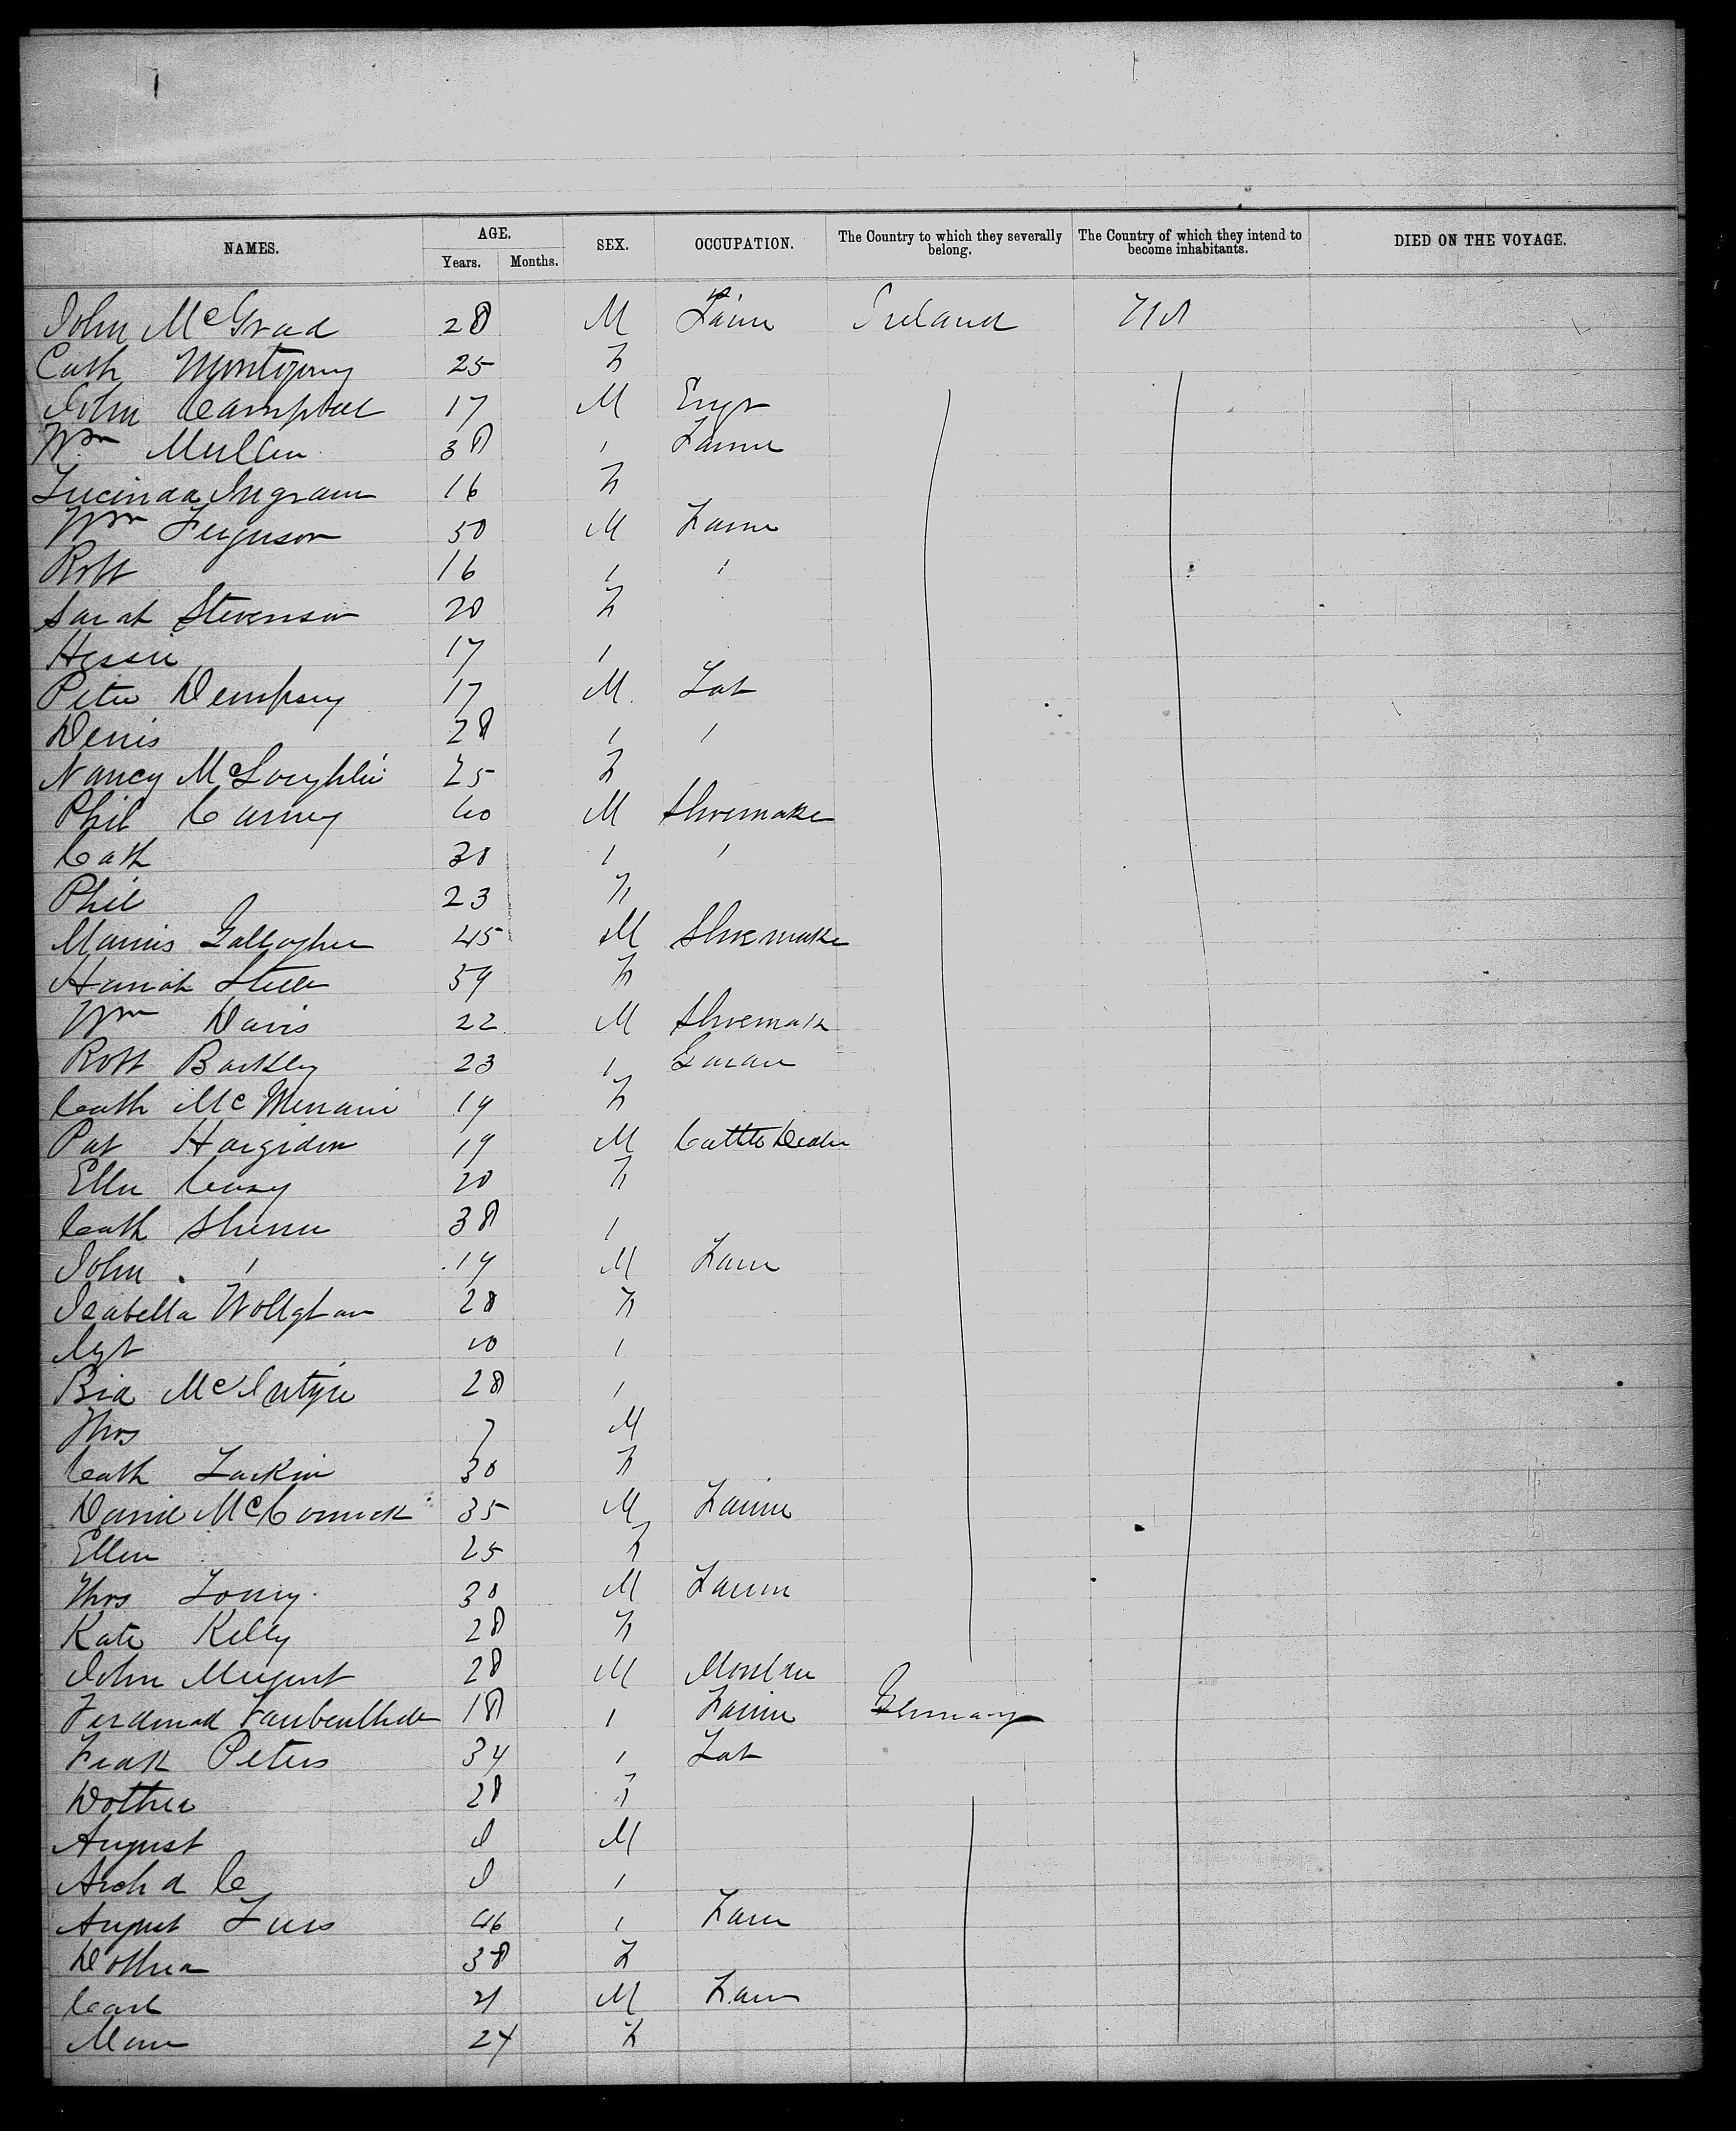 NAMES. AGE. SEX. OCCUPATION. The Country to which they severally belong. The Country of which they intend to become inhabitants. DIED ON THE VOYAGE.
Years. Months.
John McGrad 28 M Farm Ireland USA
Cath Montgomy 25 F
John Campbell 17 M Engr
Wm Mullen 38 " Farme
Lucinda Ingram 16 F
Wm Ferguson 50 M Farme
Robt 16 " "
Sarah Stevenson 20 F
Hessie 17 "
Peter Dempsey 17 M Lab
Denis 28 " "
Nancy McLoughlin 25 F
Phil Carney 60 M Shoemake
Cath 30 " "
Phil 23 F
Manus Gallagher 45 M Shoemake
Hannah Steele 59 F
Wm Davis 22 M Shoemak
Robt Barkley 23 "
Cath McMenami 19 F
Pat Hargidon 19 M Cattle Dealer
Ellen Casey 20 F
Cath Sherne 38 "
John " 19 M Farm
Isabella 28 F
Mgt 10 "
Brid McIntyre 28 "
Thos 7 M
Cath Larkin 30 F
Daniel McCormick 35 M Farme
Ellen 25 F
Thos Loury 30 M Farm
Kate Kelly 28 F
John 28 M
Ferdinand 18 " Farme Germany
Frank Peters 34 " Lab
Dothea 28 F
August M
Arch d C "
August 46 " Farm
Dothea 38 F
Carl 21 M Farm
24 F